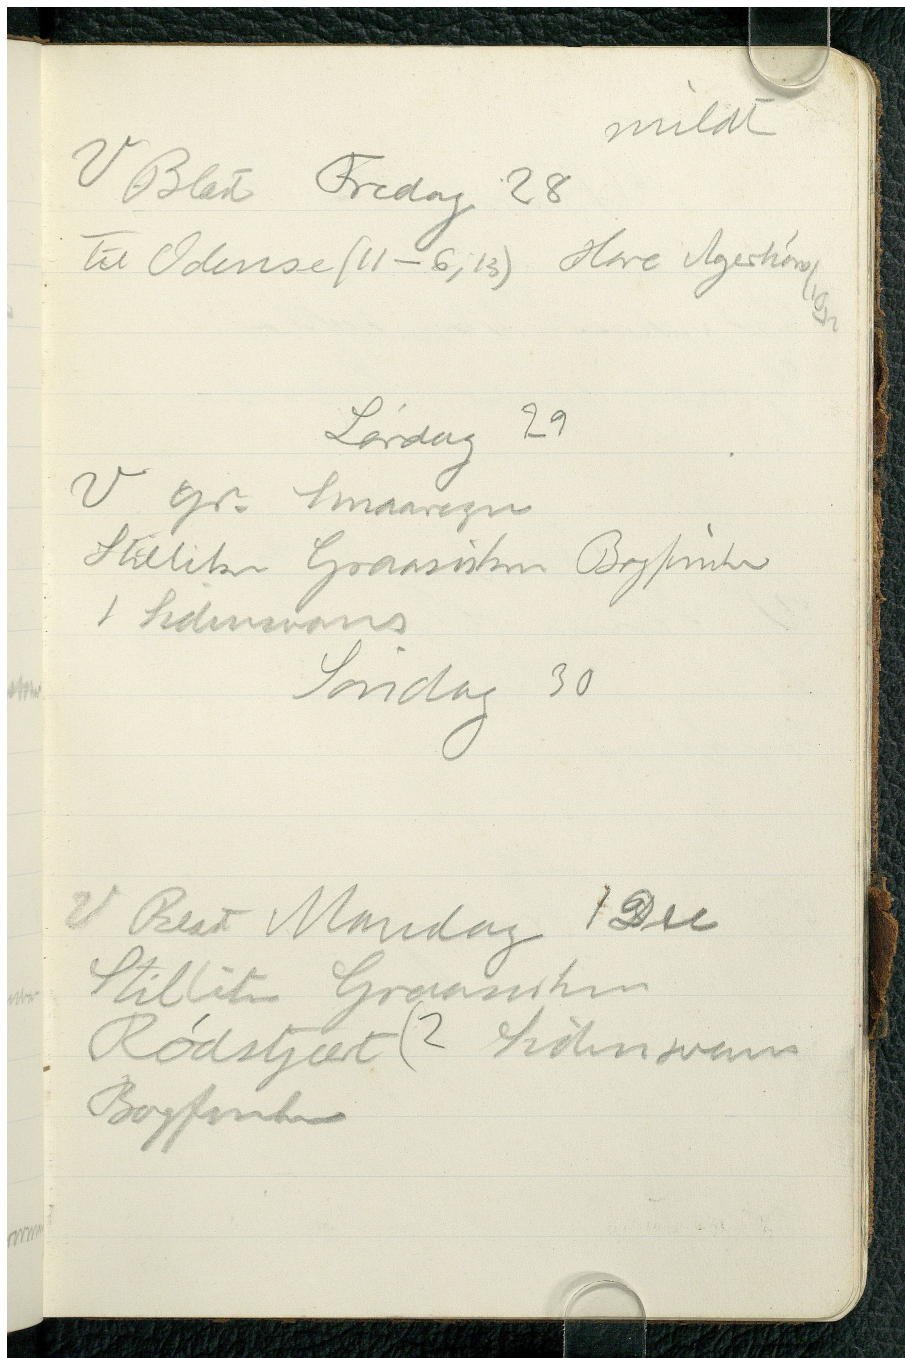 mildt
V Blæst Fredag 28
til Odense (11-6,13) Hare Agerhøns
Lørdag 29
V gr. Smaaregn
Stillitser Graasisken Bogfinke
1 Sidensvans
Søndag 30
V Blæst Mandag 1 Dec
Stillits Graasisken
Rødstjært (2 Sidensvans
Bogfinke